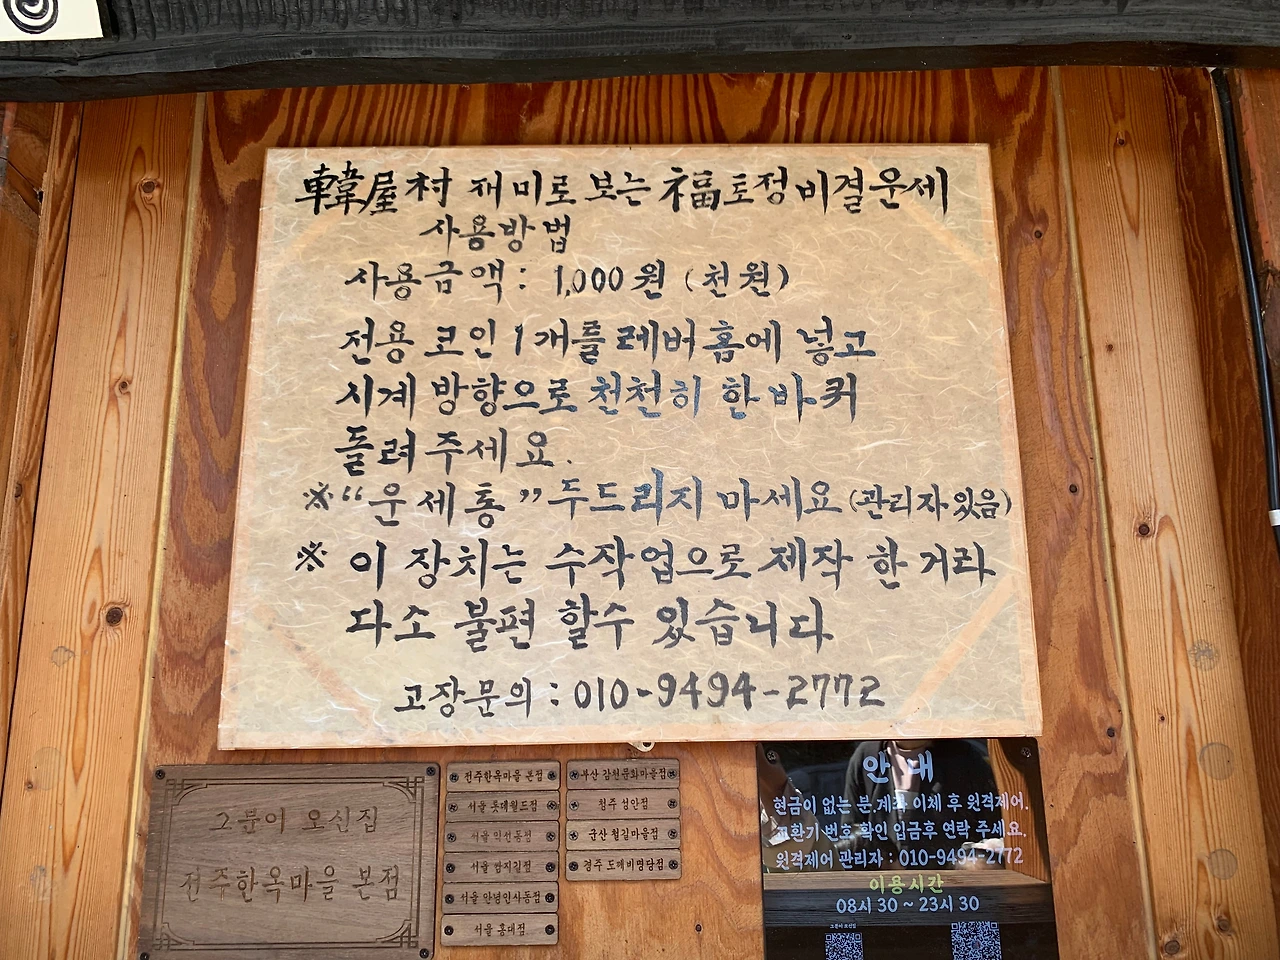 韓屋村 재미로 보는 福토정비결운세
사용방법
사용금액 : 1,000원 (천원)
전용 코인 1개를 레버홈에 넣고
시계 방향으로 천천히 한 바퀴
돌려주세요.
※ “운세통” 두드리지 마세요 (관리자 있음)
※ 이 장치는 수작업으로 제작 한 거라
다소 불편 할수 있습니다
고장문의 : 010-9494-2772
그분이 오신집
전주한옥마을 본점
전주한옥마을 본점
서울 롯데월드점
서울 익선동점
서울 쌈지길점
서울 안녕인사동점
서울 홍대점
부산 감천문화마을점
청주 성안점
군산 철길마을점
경주 도깨비명당점
안내
현금이 없는 분 계좌 이체 후 원격제어.
교환기 번호 확인 입금후 연락 주세요.
원격제어 관리자 : 010-9494-2772
이용시간
08시 30 ~ 23시 30